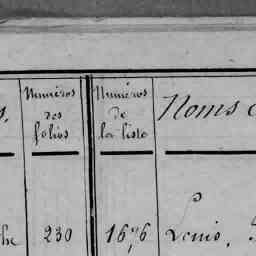 Numéros des folios
Numéros de la liste
Noms
230
1676
Louis,